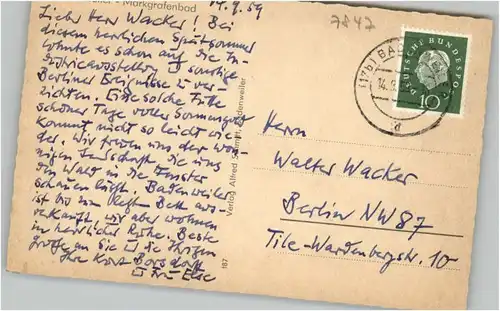 Markgrafenbad
14.9.59
7847
Lieber Herr Wacker! Bei
diesem herrlichen Spätsommer
lohnte es schon auf die In-
dustrieausstellung u. sonstige
Berliner Ereignisse zu ver-
zichten. Eine solche Fülle
schöner Tage voller Sonnenglut
kommt nicht so leicht wie-
der. Wir freuen uns der son-
nigen Landschaft die uns
den Wald in die Fenster
schauen läßt. Badenweiler
ist bis zum letzten Bett aus-
verkauft, wir aber wohnen
in herrlicher Ruhe. Beste
Grüße an Sie u. die Ihrigen
Ihre Kurt Borsdorff
u. Frau Else
Verlag Alfred Badenweiler
187
(17b) BAD
14.9.
a
DEUTSCHE BUNDESPOST
10
Herrn
Walter Wacker
Berlin NW87
Tile-Wardenbergstr. 10